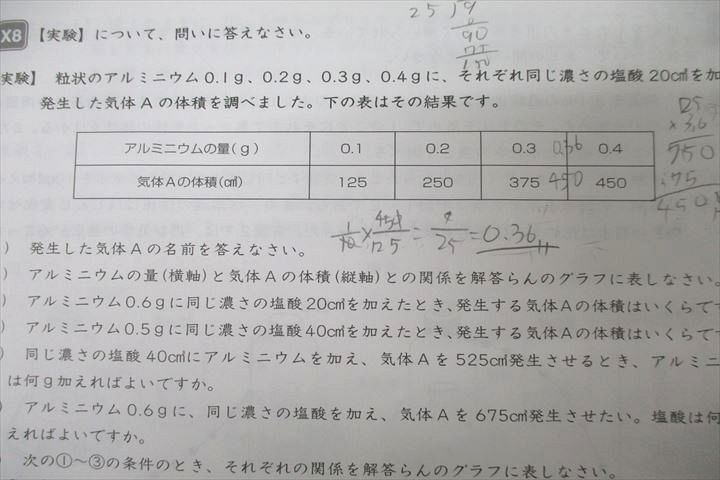 X8 【実験】について、問いに答えなさい。
2 5 9
90
実験】 粒状のアルミニウム0.1g、0.2g、0.3g、0.4gに、それぞれ同じ濃さの塩酸20cm³を加
発生した気体Aの体積を調べました。下の表はその結果です。
アルミニウムの量(g) 0.1 0.2 0.3 0.36 0.4
気体Aの体積(cm³) 125 250 375 450 450
125
×3.6
750
375
450
1/10 × 450/125 = 9/25 = 0.36
) 発生した気体Aの名前を答えなさい。
) アルミニウムの量(横軸)と気体Aの体積(縦軸)との関係を解答らんのグラフに表しなさい。
) アルミニウム0.6gに同じ濃さの塩酸20cm³を加えたとき、発生する気体Aの体積はいくらで
) アルミニウム0.5gに同じ濃さの塩酸40cm³を加えたとき、発生する気体Aの体積はいくらで
) 同じ濃さの塩酸40cm³にアルミニウムを加え、気体Aを525cm³発生させるとき、アルミニ
は何g加えればよいですか。
) アルミニウム0.6gに、同じ濃さの塩酸を加え、気体Aを675cm³発生させたい。塩酸は何
えればよいですか。
) 次の①～③の条件のとき、それぞれの関係を解答らんのグラフに表しなさい。